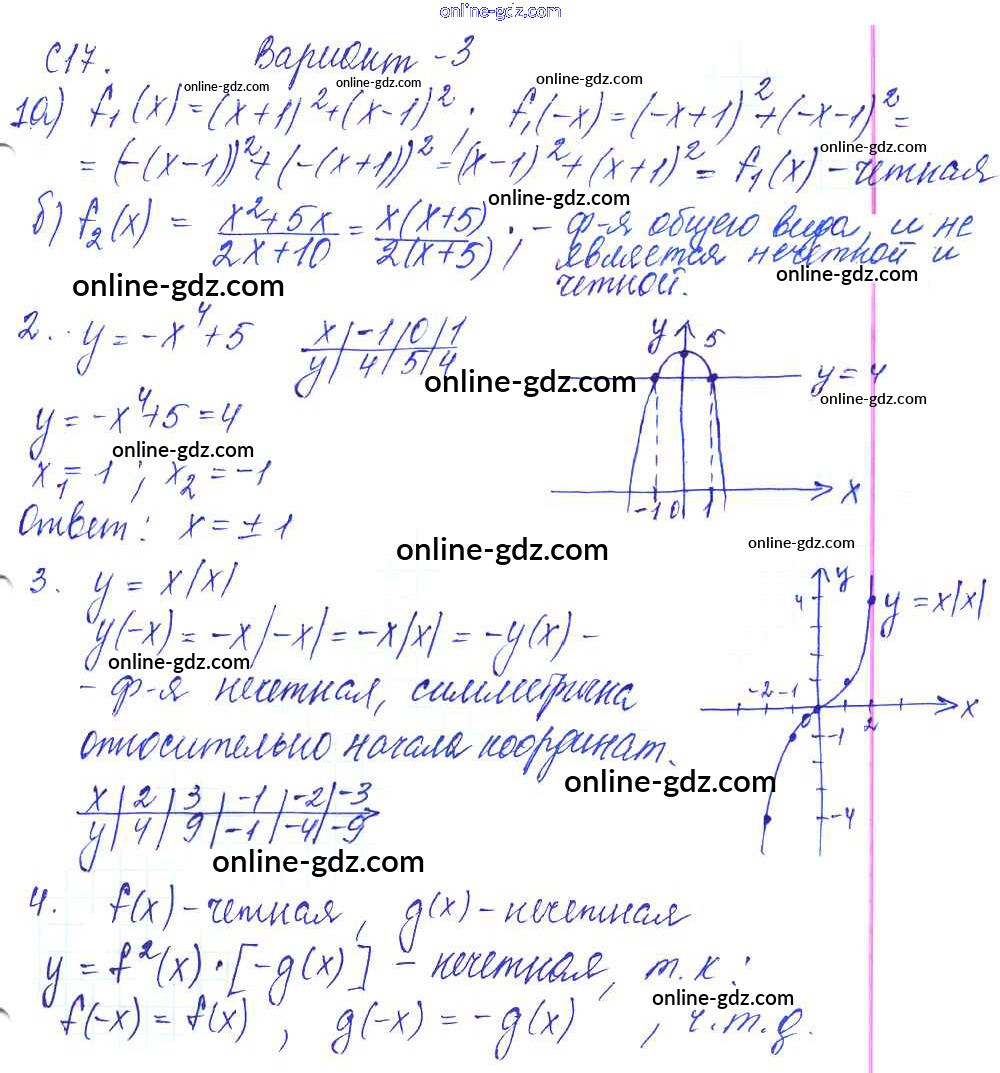 online-gdz.com
С17. Вариант - 3
online-gdz.com online-gdz.com
1а) f₁(x) = (x+1)² + (x-1)². f₁(-x) = (-x+1)² + (-x-1)² =
= (-(x-1))² + (-(x+1))² = (x-1)² + (x+1)² = f₁(x) - четная
online-gdz.com
online-gdz.com
б) f₂(x) = x²+5x / 2x+10 = x(x+5) / 2(x+5); - ф-я общего вида, и не
является нечетной и
четной.
online-gdz.com online-gdz.com
2. y = -x⁴+5
x | -1 | 0 | 1
y | 4 | 5 | 4
online-gdz.com
y 5
y = 4
online-gdz.com
-1 0 1 x
y = -x⁴+5 = 4
online-gdz.com
x₁ = 1; x₂ = -1
Ответ: x = ± 1
online-gdz.com online-gdz.com
3. y = x|x|
y(-x) = -x|-x| = -x|x| = -y(x) -
online-gdz.com
- ф-я нечетная, симметрична
относительно начала координат.
online-gdz.com
y
4
y = x|x|
-2 -1 0 2 x
-1
-4
x | 2 | 3 | -1 | -2 | -3
y | 4 | 9 | -1 | -4 | -9
online-gdz.com
4. f(x) - четная, g(x) - нечетная
y = f²(x) · [-g(x)] - нечетная, т.к:
online-gdz.com
f(-x) = f(x), g(-x) = -g(x), ч.т.д.
online-gdz.com